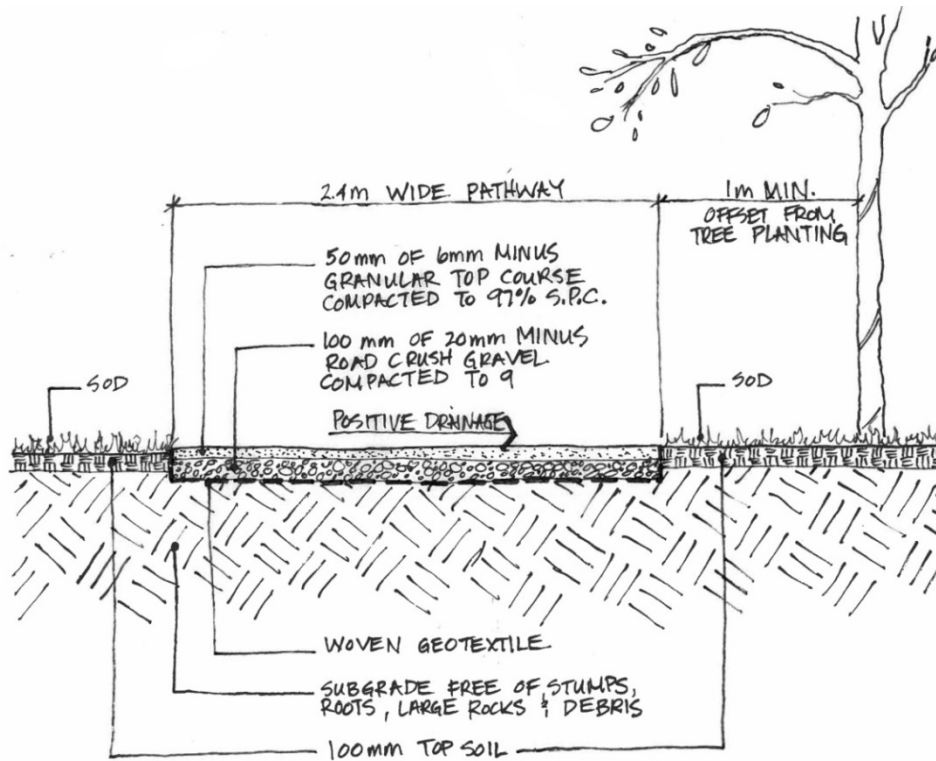 2.4m WIDE PATHWAY
1m MIN.
OFFSET FROM
TREE PLANTING
50mm OF 6mm MINUS
GRANULAR TOP COURSE
COMPACTED TO 97% S.P.C.
100 mm OF 20mm MINUS
ROAD CRUSH GRAVEL
COMPACTED TO 9
SOD
SOD
POSITIVE DRAINAGE
WOVEN GEOTEXTILE
SUBGRADE FREE OF STUMPS,
ROOTS, LARGE ROCKS & DEBRIS
100mm TOP SOIL